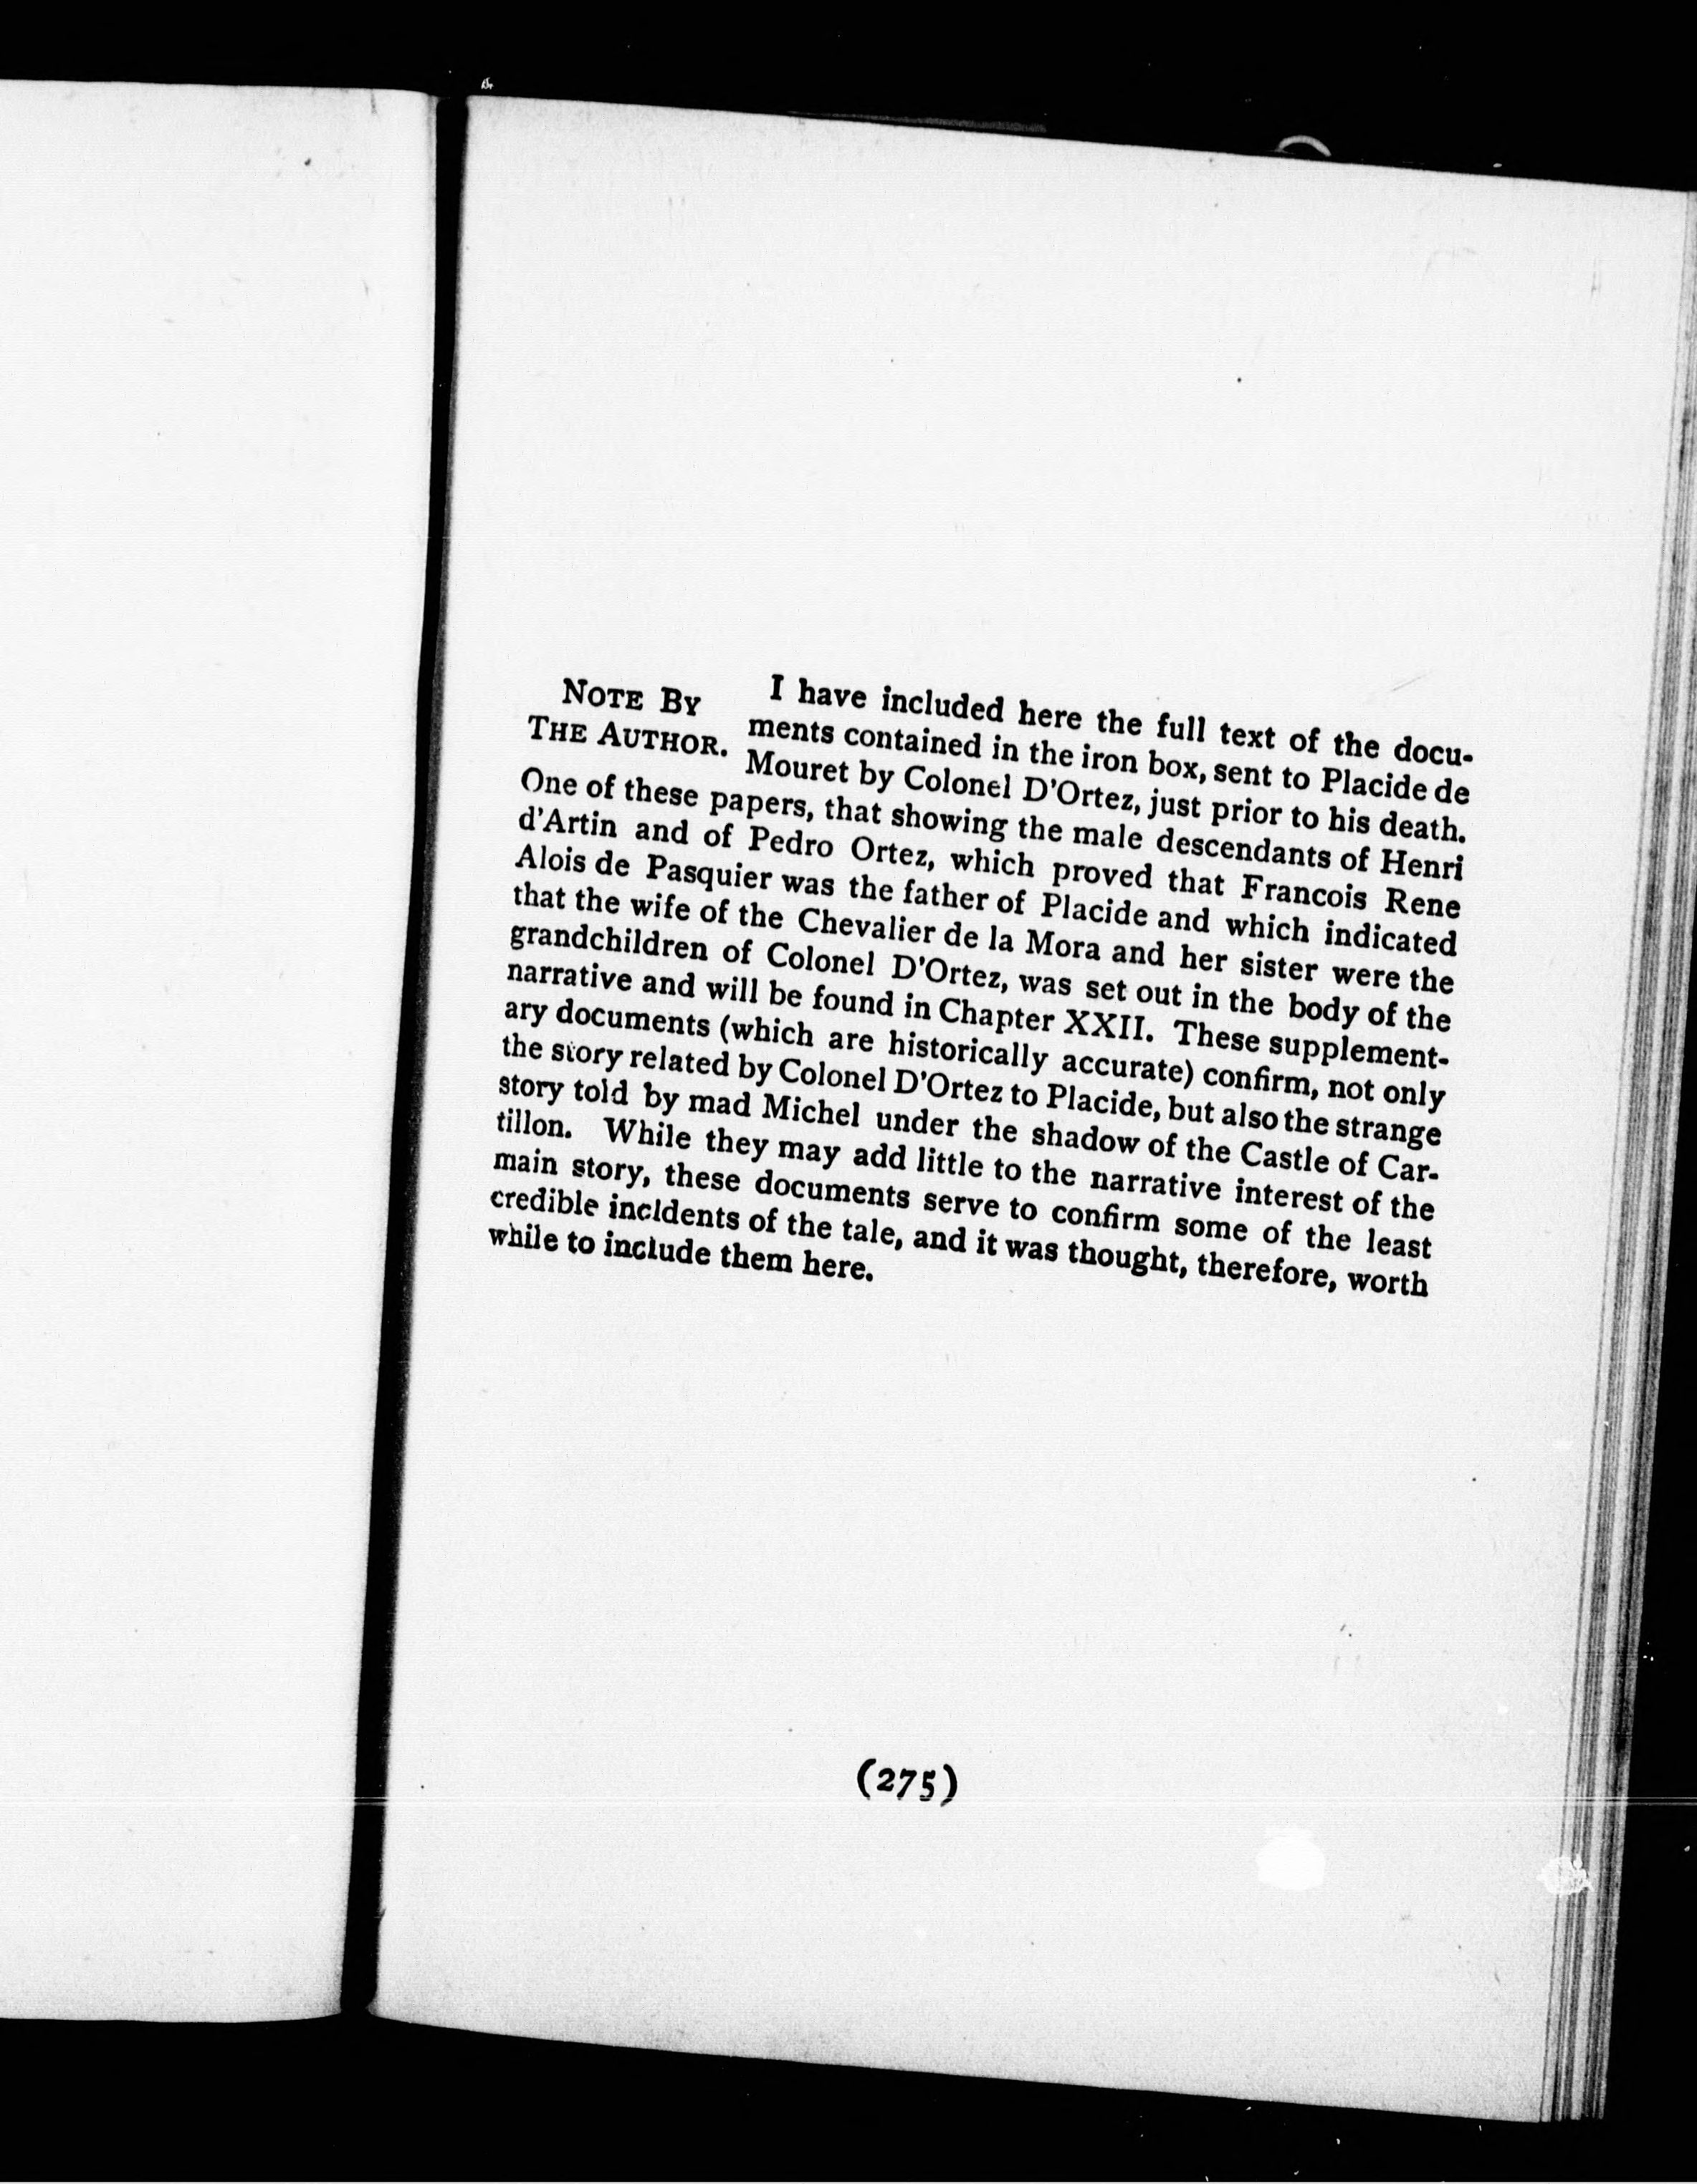 NOTE BY
THE AUTHOR.
I have included here the full text of the docu-
ments contained in the iron box, sent to Placide de
Mouret by Colonel D'Ortez, just prior to his death.
One of these papers, that showing the male descendants of Henri
d'Artin and of Pedro Ortez, which proved that Francois Rene
Alois de Pasquier was the father of Placide and which indicated
that the wife of the Chevalier de la Mora and her sister were the
grandchildren of Colonel D'Ortez, was set out in the body of the
narrative and will be found in Chapter XXII. These supplement-
ary documents (which are historically accurate) confirm, not only
the story related by Colonel D'Ortez to Placide, but also the strange
story told by mad Michel under the shadow of the Castle of Car-
tillon. While they may add little to the narrative interest of the
main story, these documents serve to confirm some of the least
credible incidents of the tale, and it was thought, therefore, worth
while to include them here.
(275)